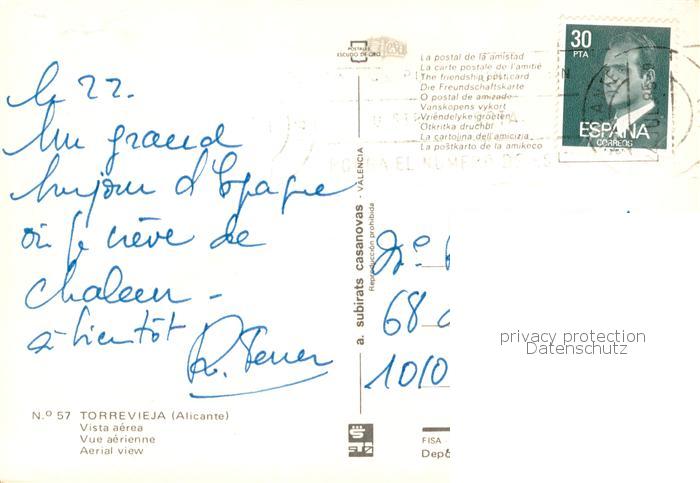 le 22.
Un grand
bonjour d'Espagne
où je crève de
chaleur -
à bientôt
N.º 57 TORREVIEJA (Alicante)
Vista aérea
Vue aérienne
Aerial view
POSTALES
ESCUDO DE ORO
La postal de la amistad
La carte postale de l'amitié
The friendship postcard
Die Freundschaftskarte
O postal de amizade
Vanskopens vykort
Vriendelyke groeten
Otkritka druchbi
La cartolina dell'amicizia
La postkarto de la amikeco
30
PTA
ESPAÑA
CORREOS
a. subirats casanovas - VALENCIA
Reproducción prohibida
68
1010
privacy protection
Datenschutz
FISA -
Depó